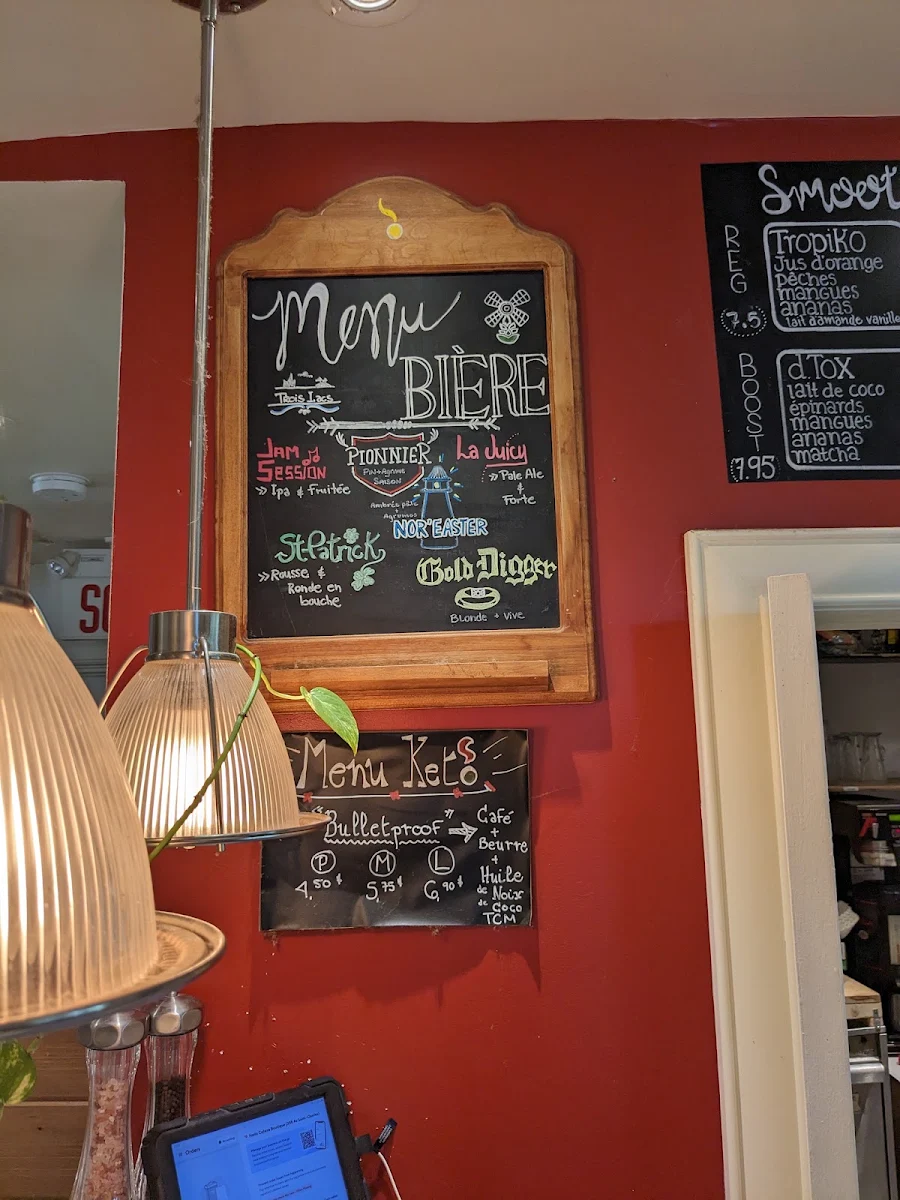 Menu
BIÈRE
Trois Lacs
Jam
Session
» Ipa & Fruitée
PIONNIER
Pin + Agrume
SAISON
La Juicy
» Pale Ale
&
Forte
Ambrée pâle
+
Agrumes
NOR'EASTER
St-Patrick
» Rousse &
Ronde en
bouche
Gold Digger
Blonde + Vive
Smoot
REG
7.5
TropiKo
Jus d'orange
pêches
mangues
ananas
lait d'amande vanille
BOOST
7.95
d.Tox
lait de coco
épinards
mangues
ananas
matcha
Menu Keto
"Bulletproof" →
P M L
4,50¢ 5,75¢ 6,90¢
Café
+
Beurre
+
Huile
de Noix
de Coco
TCM
Orders